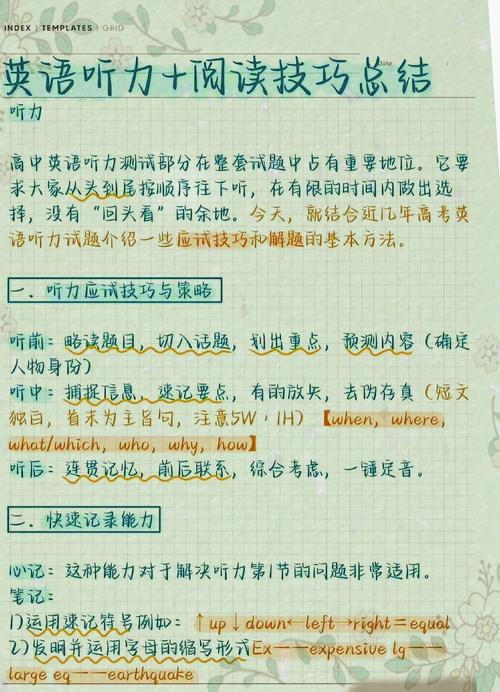 INDEX | TEMPLATES | GRID
Date
英语听力+阅读技巧总结
听力
高中英语听力测试部分在整套试题中占有重要地位。它要
求大家从头到尾按顺序往下听，在有限的时间内做出选
择，没有“回头看”的余地。今天，就结合近几年高考英
语听力试题介绍一些应试技巧和解题的基本方法。
一．听力应试技巧与策略
听前：略读题目，切入话题，划出重点，预测内容（确定
人物身份）
听中：捕捉信息，速记要点，有的放矢，去伪存真（短文
独白，首末为主旨句，注意5W，1H）【when, where,
what/which, who, why, how】
听后：连贯记忆，前后联系，综合考虑，一锤定音。
二．快速记录能力
心记：这种能力对于解决听力第1节的问题非常适用。
笔记：
1)运用速记符号例如：↑up↓down←left→right＝equal
2)发明并运用字母的缩写形式Ex——expensive lg——
large eq——earthquake